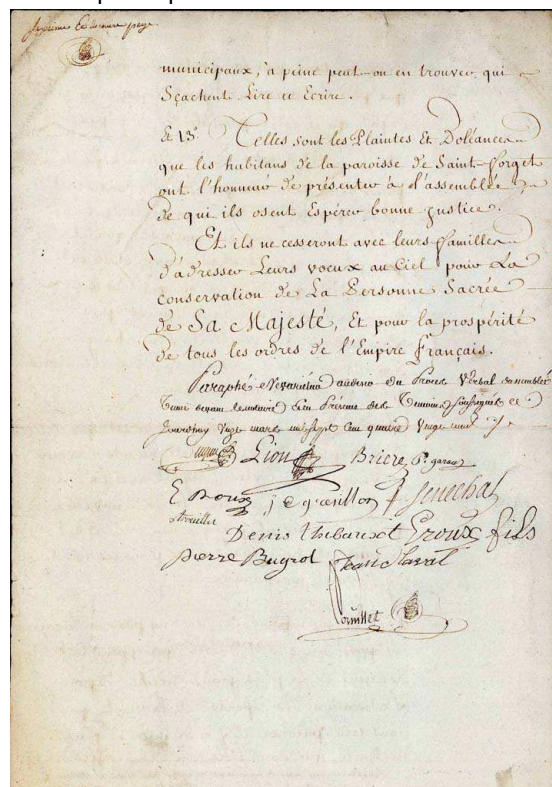 municipaux, à peine peut-on en trouver qui
Sçachent Lire et Ecrire.
& 13° Telles sont les Plaintes Et Doléances
que les habitans de la paroisse de Saint-forget
ont l'honneur de présenter à l'assemblée
de qui ils osent Espérer bonne justice.
Et ils ne cesseront avec leurs familles
d'adresser Leurs voeux au Ciel pour La
conservation de La Personne Sacrée
de Sa Majesté, Et pour la prospérité
de tous les ordres de l'Empire français.
Paraphé Nevarietur au desir du Procès Verbal d'assemblée
Tenue devant le notaire En Présence des Temoins soussignés ce
jourd'huy Vingt mars mil sept Cent quatre Vingt neuf
Lion Briere P. garau
E Doux senechal
Denis thibausot Groux fils
pierre Bugrot Jean Laval